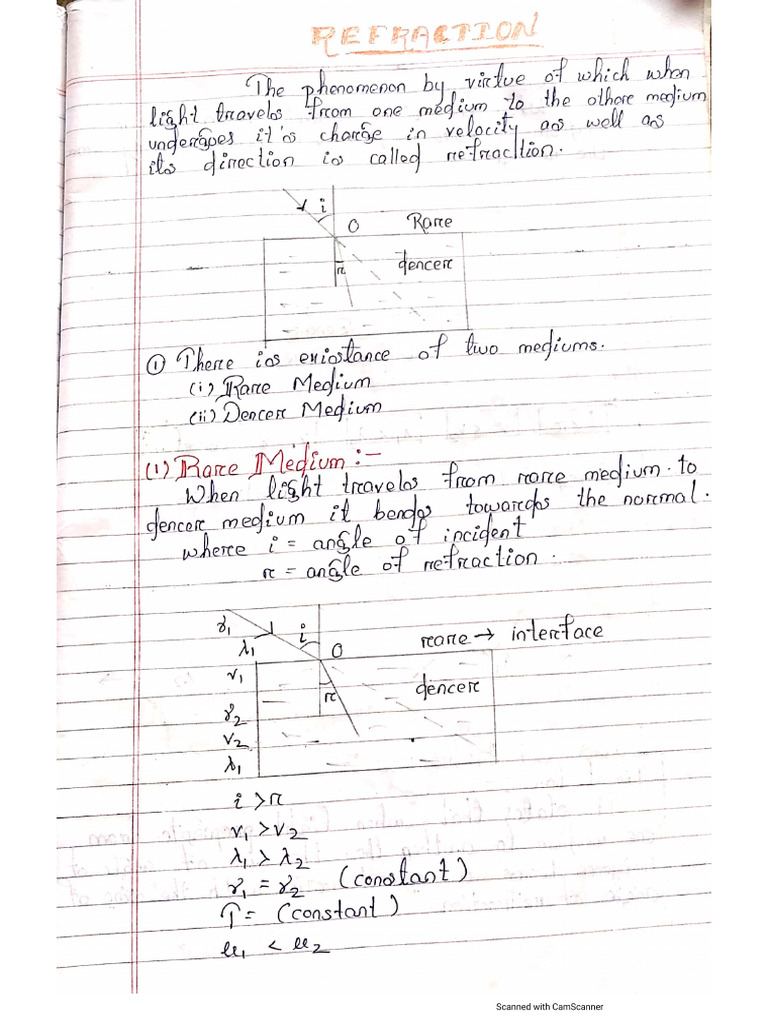 REFRACTION
The phenomenon by virtue of which when
light travels from one medium to the othere medium
undergoes it's change in velocity as well as
its direction is called refracltion.
i
O Rare
r dencer
① There ios existance of two mediums.
(i) Rare Medium
(ii) Dencer Medium
(1) Rare Medium :-
When light travels from rare medium to
dencer medium it bends towards the normal.
where i = angle of incident
r = angle of refraction.
γ₁ i rare → interface
λ₁ O
v₁ dencer
r
γ₂
v₂
λ₁
i > r
v₁ > v₂
λ₁ > λ₂
γ₁ = γ₂ (constant)
T = (constant)
μ₁ < μ₂
Scanned with CamScanner